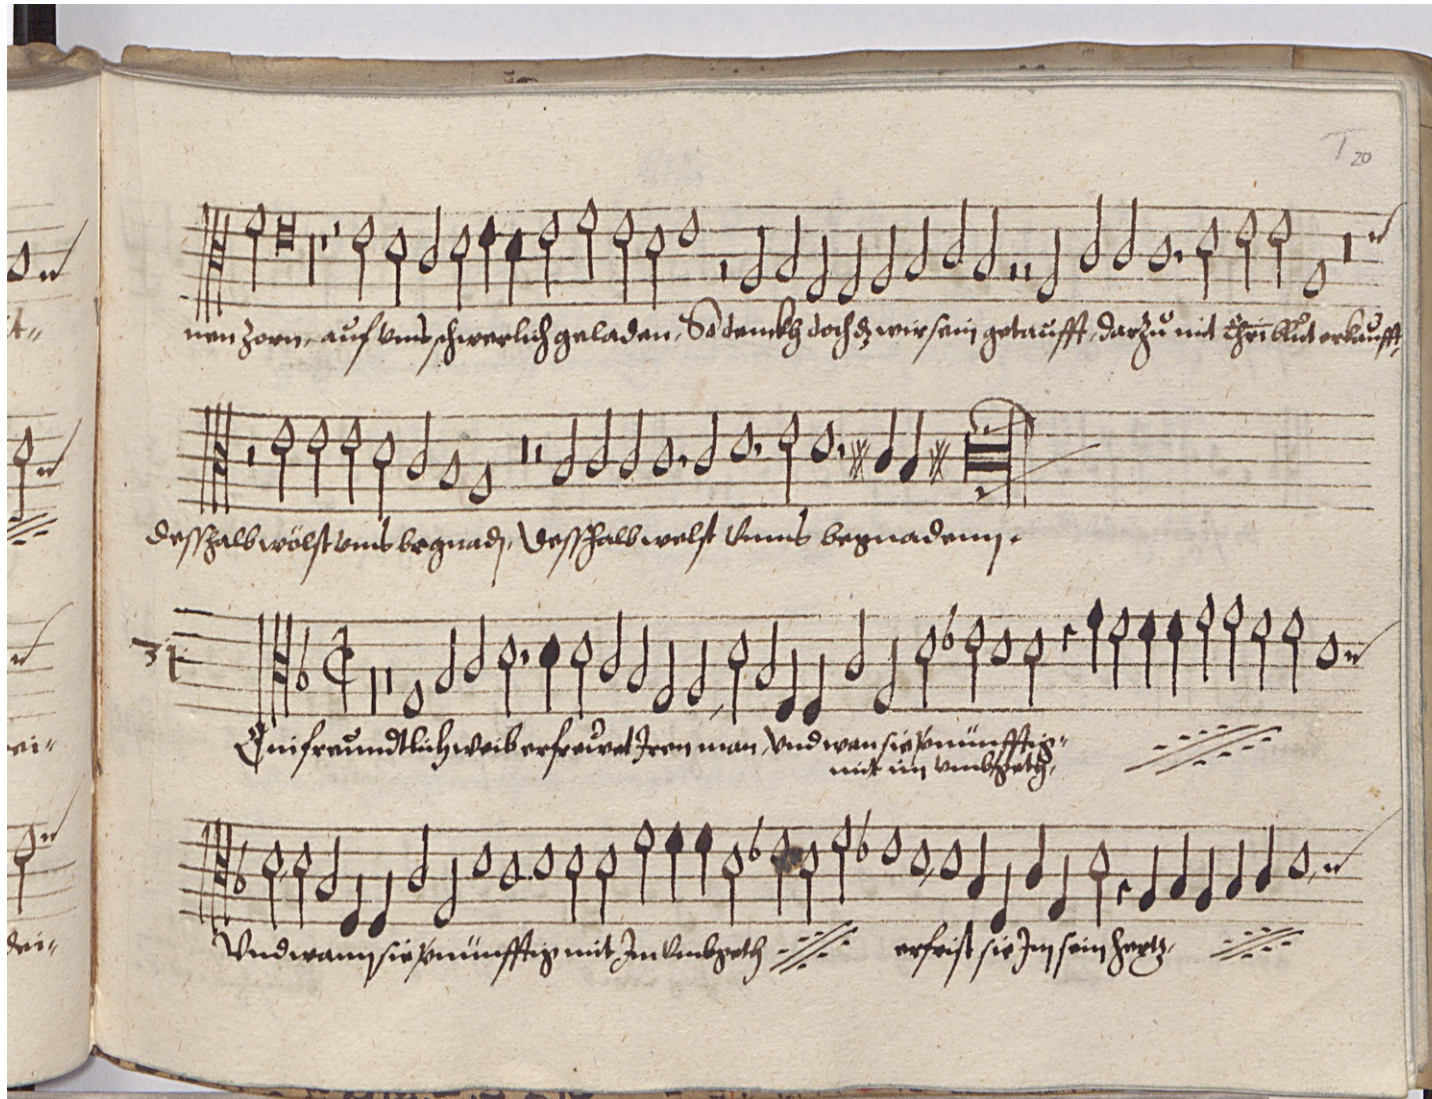 T 20
nen Zorn, auf vnns schwerlich geladen, So denckh doch dz wir sein getaufft, darzu mit Chri blut erkaufft,
desshalb wölst vnns begnadn, desshalb welst vnns begnadenn.
31
Ein freundtlich weib erfrewet Iren man, Vnd wan sie vernünfftig
mit im vmbgeth,
Vnd wann sie vernünfftig mit Im vmbgeth erfrist sie Im sein hertz,